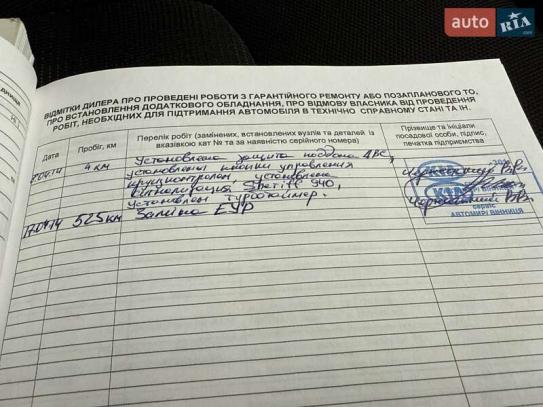 auto RIA
ВІДМІТКИ ДИЛЕРА ПРО ПРОВЕДЕНІ РОБОТИ З ГАРАНТІЙНОГО РЕМОНТУ АБО ПОЗАПЛАНОВОГО ТО,
ПРО ВСТАНОВЛЕННЯ ДОДАТКОВОГО ОБЛАДНАННЯ, ПРО ВІДМОВУ ВЛАСНИКА ВІД ПРОВЕДЕННЯ
РОБІТ, НЕОБХІДНИХ ДЛЯ ПІДТРИМАННЯ АВТОМОБІЛЯ В ТЕХНІЧНО СПРАВНОМУ СТАНІ ТА ІН.
Дата
Пробіг, км
Перелік робіт (замінених, встановлених вузлів та деталей із
вказівкою кат № та за наявністю серійного номера)
Прізвище та ініціали
посадової особи, підпис,
печатка підприємства
04.14 9 км Установлена защита поддона ДВС,
установлены кнопки управления
круизконтролем, установлена
сигнализация Sheriff 940,
установлен турботаймер.
17.04.14 525 км Заміна ЕУР
KIA
сервіс
АВТОМИР ВІННИЦЯ